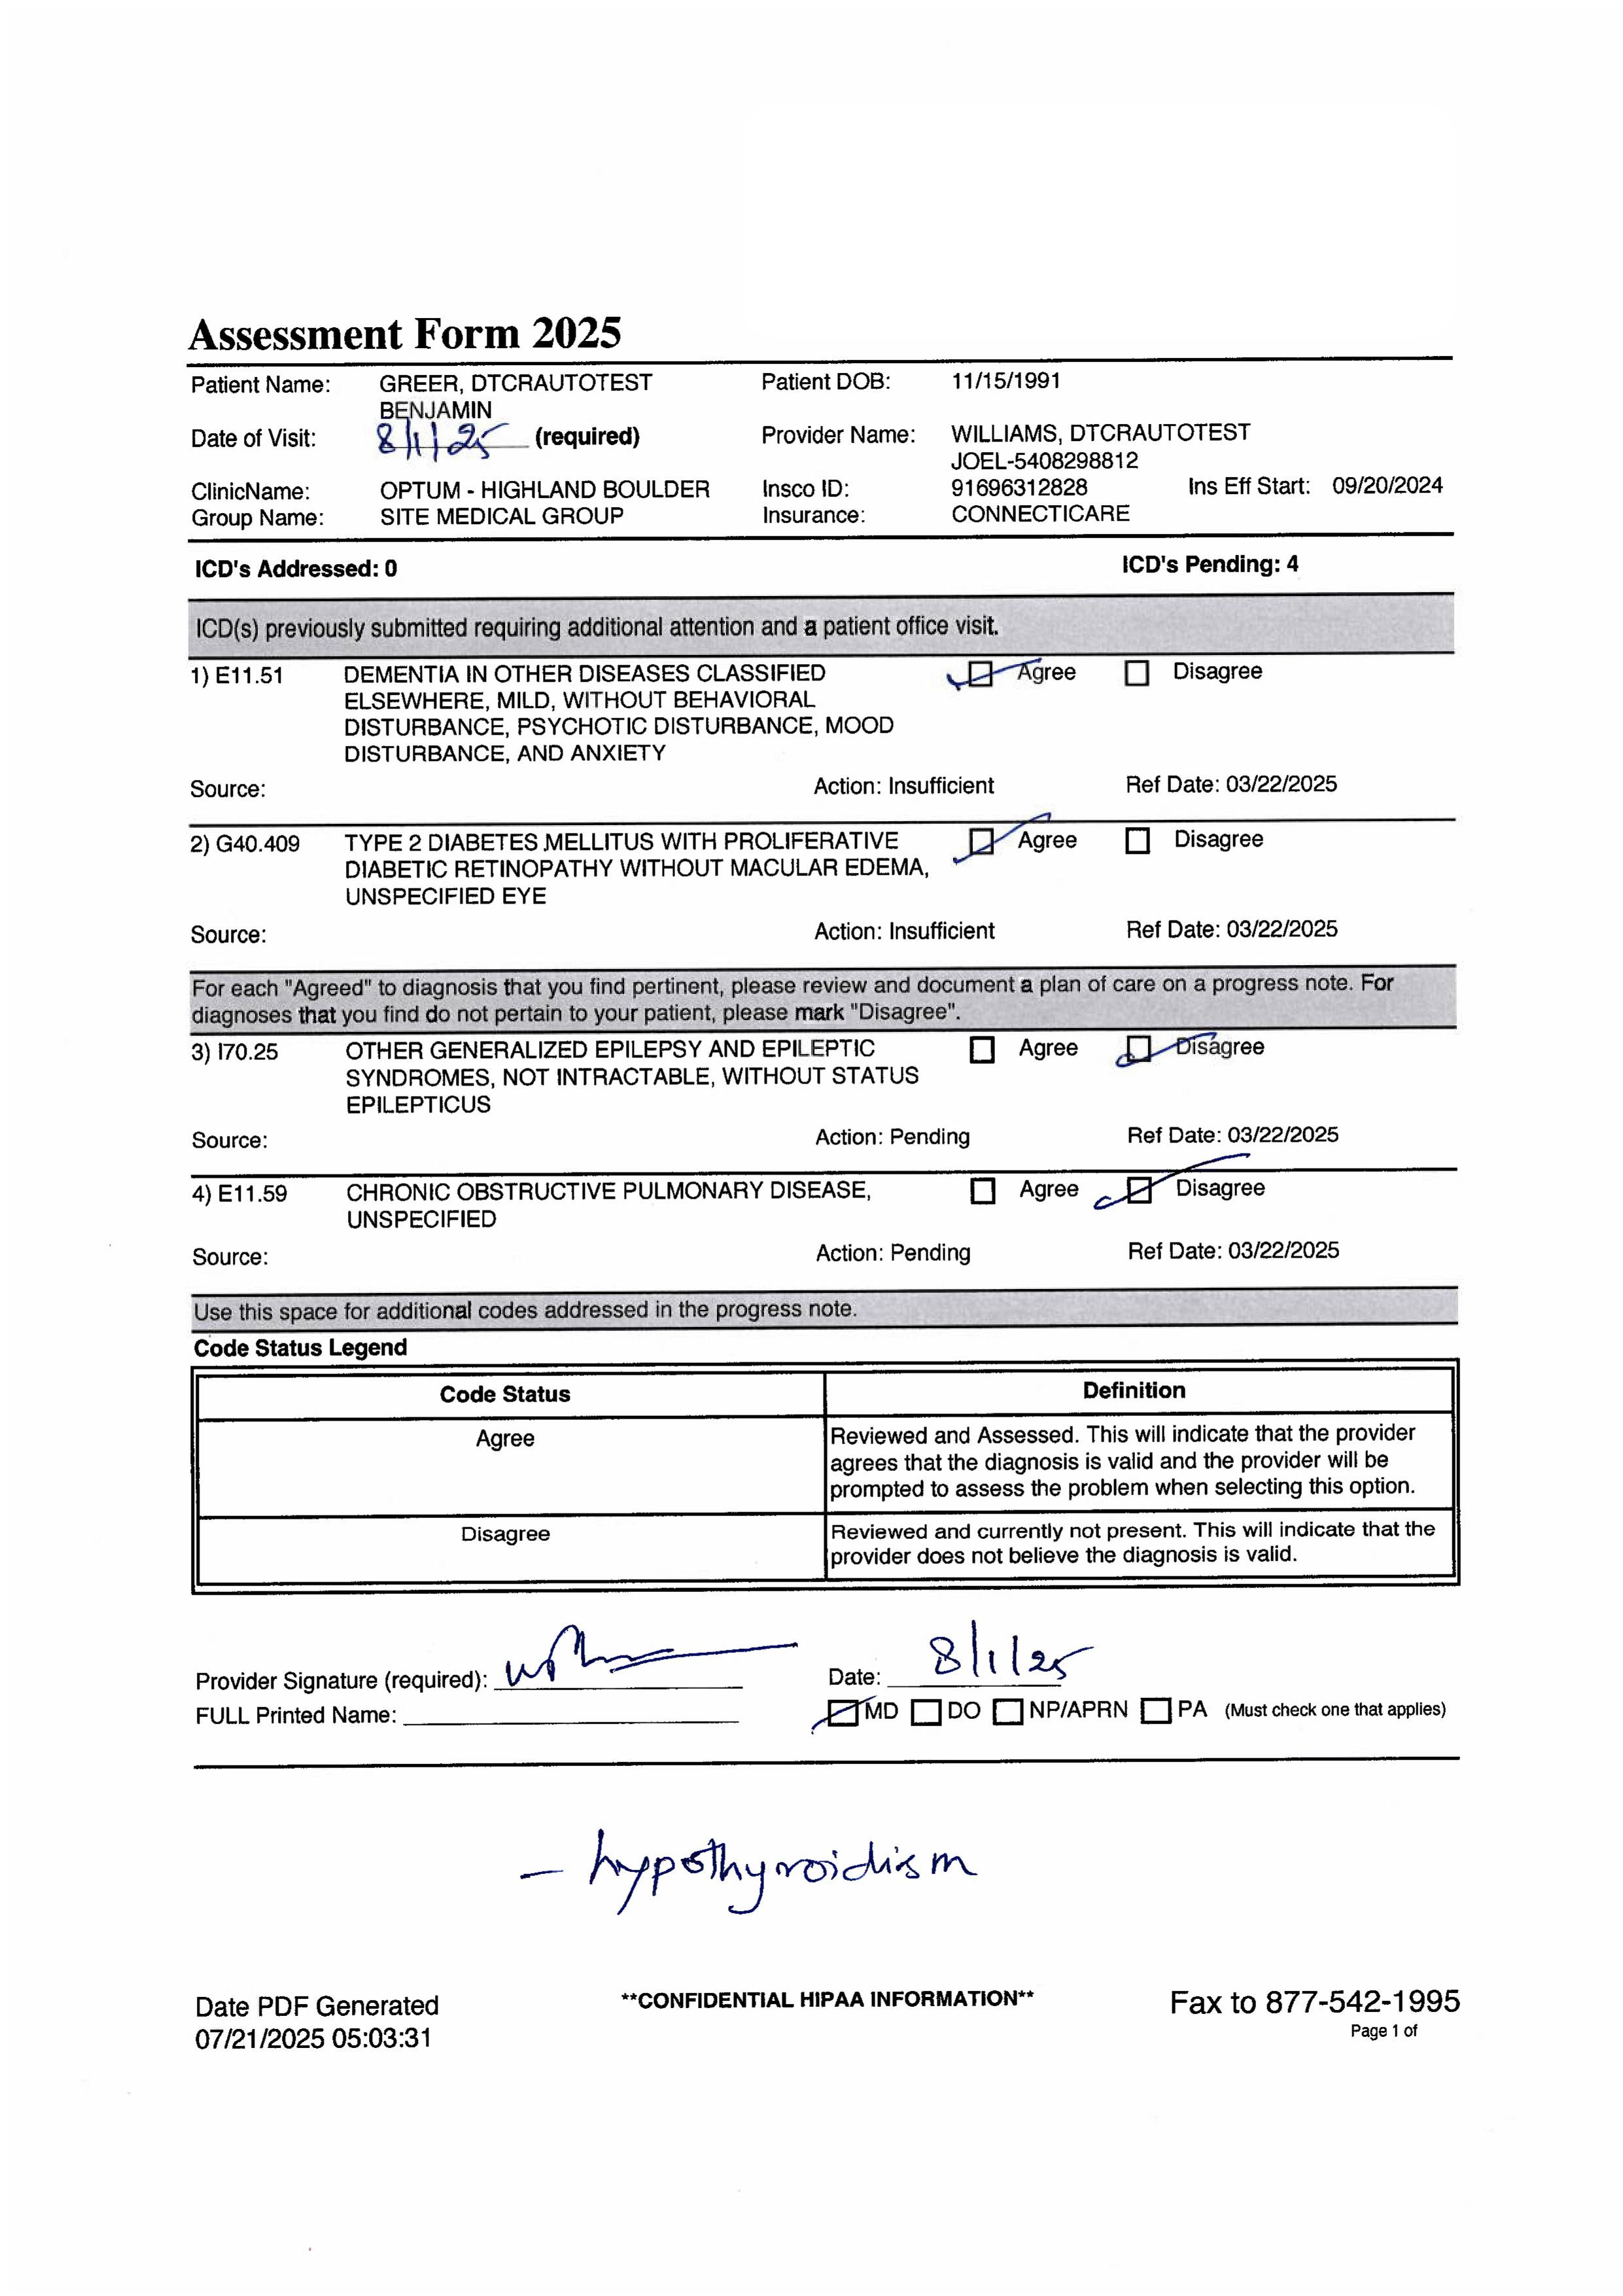 Assessment Form 2025
Patient Name: GREER, DTCRAUTOTEST Patient DOB: 11/15/1991
BENJAMIN
Date of Visit: 8/1/25 (required) Provider Name: WILLIAMS, DTCRAUTOTEST
JOEL-5408298812
ClinicName: OPTUM - HIGHLAND BOULDER Insco ID: 91696312828 Ins Eff Start: 09/20/2024
Group Name: SITE MEDICAL GROUP Insurance: CONNECTICARE
ICD's Addressed: 0 ICD's Pending: 4
ICD(s) previously submitted requiring additional attention and a patient office visit.
1) E11.51 DEMENTIA IN OTHER DISEASES CLASSIFIED Agree Disagree
ELSEWHERE, MILD, WITHOUT BEHAVIORAL
DISTURBANCE, PSYCHOTIC DISTURBANCE, MOOD
DISTURBANCE, AND ANXIETY
Source: Action: Insufficient Ref Date: 03/22/2025
2) G40.409 TYPE 2 DIABETES MELLITUS WITH PROLIFERATIVE Agree Disagree
DIABETIC RETINOPATHY WITHOUT MACULAR EDEMA,
UNSPECIFIED EYE
Source: Action: Insufficient Ref Date: 03/22/2025
For each "Agreed" to diagnosis that you find pertinent, please review and document a plan of care on a progress note. For
diagnoses that you find do not pertain to your patient, please mark "Disagree".
3) I70.25 OTHER GENERALIZED EPILEPSY AND EPILEPTIC Agree Disagree
SYNDROMES, NOT INTRACTABLE, WITHOUT STATUS
EPILEPTICUS
Source: Action: Pending Ref Date: 03/22/2025
4) E11.59 CHRONIC OBSTRUCTIVE PULMONARY DISEASE, Agree Disagree
UNSPECIFIED
Source: Action: Pending Ref Date: 03/22/2025
Use this space for additional codes addressed in the progress note.
Code Status Legend
Code Status Definition
Agree Reviewed and Assessed. This will indicate that the provider
agrees that the diagnosis is valid and the provider will be
prompted to assess the problem when selecting this option.
Disagree Reviewed and currently not present. This will indicate that the
provider does not believe the diagnosis is valid.
Provider Signature (required): Date: 8/1/25
FULL Printed Name: MD DO NP/APRN PA (Must check one that applies)
- hypothyroidism
Date PDF Generated **CONFIDENTIAL HIPAA INFORMATION** Fax to 877-542-1995
07/21/2025 05:03:31 Page 1 of